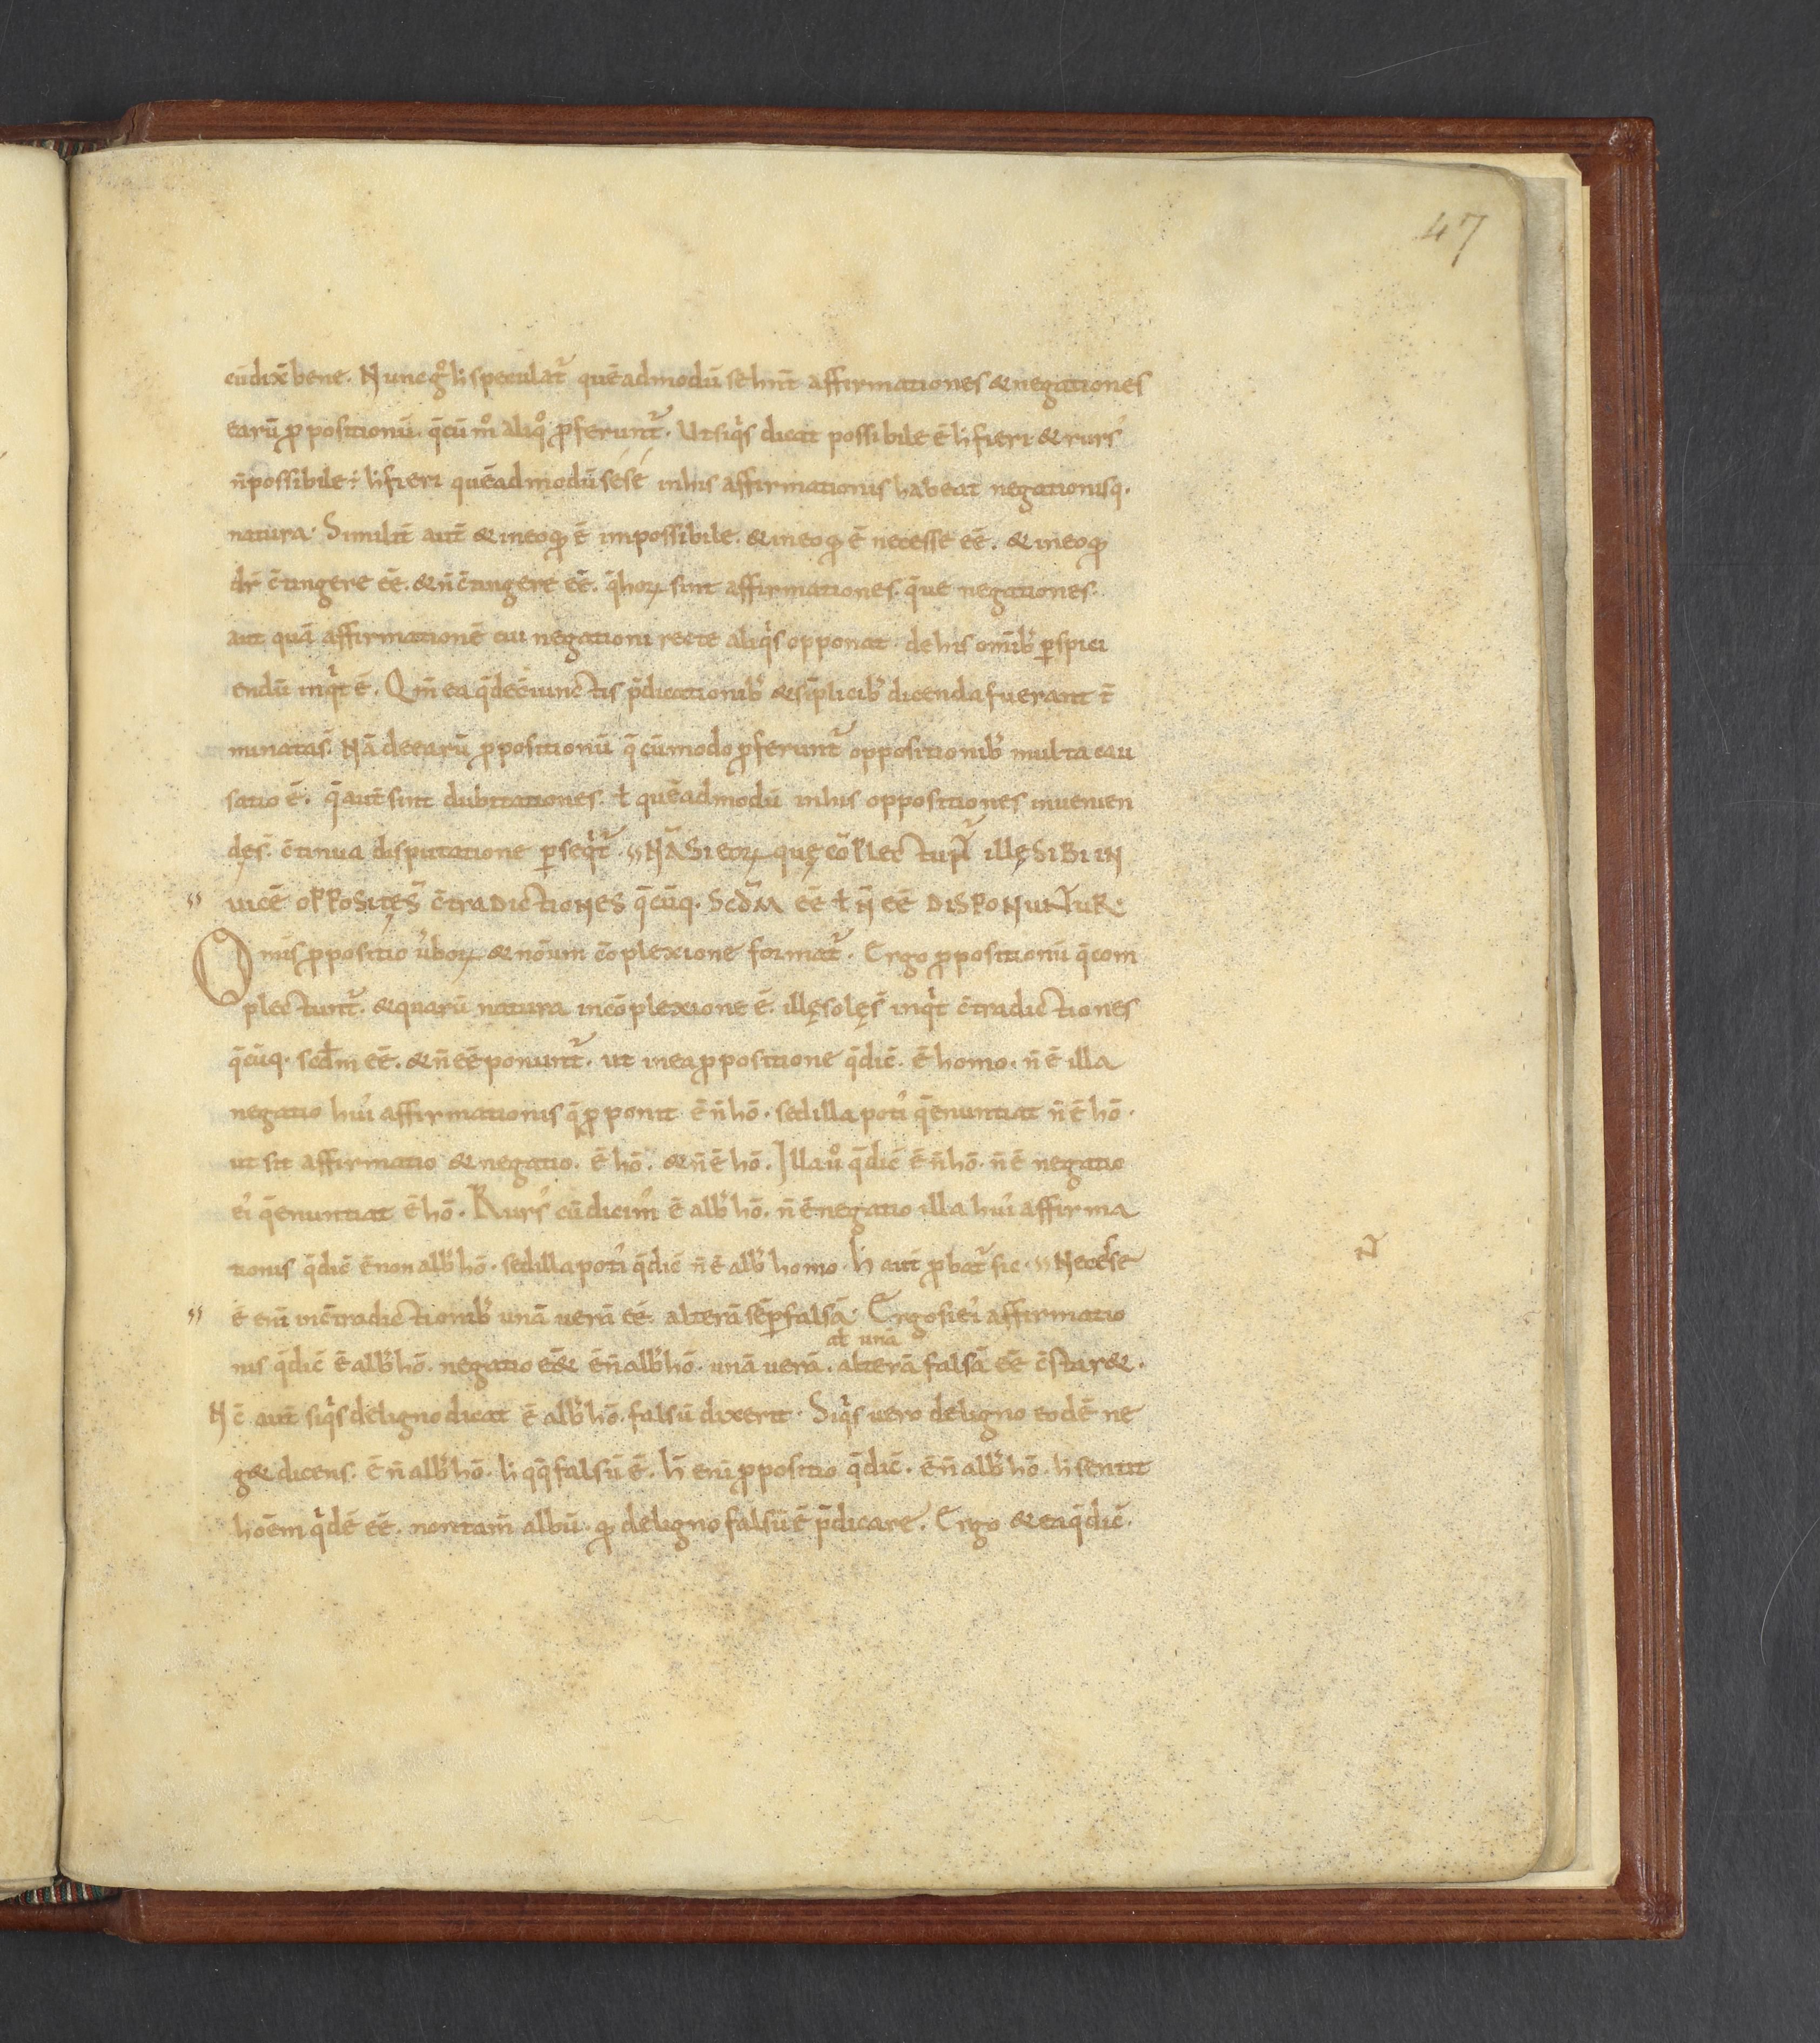 47
cū dix̄ bene. Nunc gͦ h̄ speculat᷑ quēadmodū se hnt̄ affirmationes & negationes
earū ꝓpositionū. q̄ cū mͦ aliqͦ ꝓferunt᷑. Ut siqͥs dicat possibile ē h̄ fieri & rursꝰ
n̄ possibile ÷ h̄ fieri quēadmodū sésé in his affirmationis habeat negationisq.
natura. Similit̄ aut̄ & in eo qđ ē impossibile. & in eo qđ ē necesse eē. & in eo qđ
dr̄ c̄tingere eē. & n̄ c̄tingere eē. q̄ hoꝝ sint affirmationes. q̄ue negationes.
aut quā affirmationē cui negationi recte aliqͥs opponat. de his omībꝰ ꝑspici
endū inqͥt ē. Qm̄ ea q̄ de c̄iunctis p̄dicationibꝰ & sīplicibꝰ dicenda fuerant t̄
minatas̄. Nā de earū ꝓpositionū q̄ cū modo ꝓferunt᷑ oppositionibꝰ multa cau
satio ē. q̄ aut̄ sint dubitationes. ł quēadmodū in his oppositiones inuenien
dęs̄. c̄tinua disputatione ꝑseqͥt᷑. " NĀ SI EOꝝ quę cōPLECTUN᷑ ILLĘ SIBI IN
" UICĒ OPPOSITĘS̄ C̄TRADICTIONES q̄cūq. SCD̄M EĒ ł N̄ EĒ DISPONUNTUR.
Omīs ꝓpositio ūboꝝ & nōum cōplexione format᷑. Ergo ꝓpositionū q̄ com
plectunt᷑. & quarū natura in cōplexione ē. illę solęs̄ inqͥt c̄tradictiones
q̄cūq. scd̄m eē. & n̄ eē ponunt᷑. ut in ea ꝓpositione q̄ dic̄. ē homo. n̄ ē illa
negatio huiꝰ affirmationis q̄ ꝓponit ē n̄ hō. sed illa potiꝰ q̄ enuntiat n̄ ē hō.
ut sit affirmatio & negatio. ē hō. & n̄ ē hō. Illa uͦ q̄ dic̄ ē n̄ hō. n̄ ē negatio
eiꝰ q̄ enuntiat ē hō. Rursꝰ cū dicimꝰ ē albꝰ hō. n̄ ē negatio illa huiꝰ affirma
tionis q̄ dic̄ ē non albꝰ hō. sed illa potiꝰ q̄ dic̄ n̄ ē albꝰ homo. h̄ aut̄ ꝓbat᷑ sic. " Necesse
" ē enī in c̄tradictionibꝰ unā uerā eē. alterā sēꝑ falsā. Ergo si eiꝰ affirmatio
ał unā
nis q̄ dic̄ ē albꝰ hō. negatio eēt ē n̄ albꝰ hō. unā uerā. alterā falsā eē c̄star&.
Nc̄ aut̄ siqͥs de ligno dicat ē albꝰ hō. falsū dixerit. Siqͥs uero de ligno eodē ne
g& dicens. ē n̄ albꝰ hō. h̄ qq̄ falsū ē. h̄ enī ꝓpositio q̄ dic̄. ē n̄ albꝰ hō. h̄ sentit
hōem qͥdē eē. non tam̄ albū. qđ de ligno falsū ē p̄dicare. Ergo & ea q̄ dic̄.